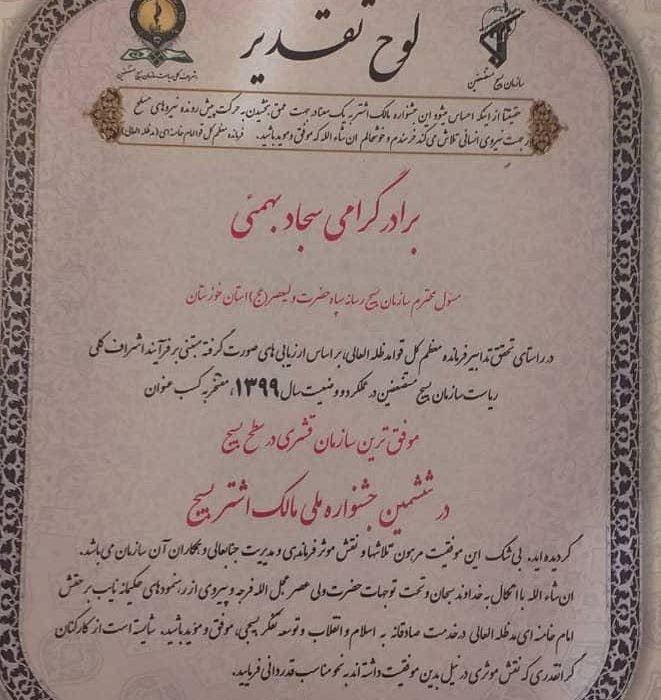 لوح تقدیر
سازمان بسیج مستضعفین
اشراف کلی ریاست سازمان بسیج مستضعفین
حقیقتا از اینکه احساس میشود این جشنواره مالک اشتر به یک معنا در جهت عمق بخشیدن به حرکت پیش رونده نیروهای مسلح
در جهت نیروی انسانی تلاش می کند خرسندم و خوشحالم ان شاء الله که موفق و موید باشید. فرمانده معظم کل قوا امام خامنه ای (مد ظله العالی)
برادر گرامی سجاد بهمئی
مسئول محترم سازمان بسیج رسانه سپاه حضرت ولیعصر (عج) استان خوزستان
در راستای تحقق تدابیر فرمانده معظم کل قوا مدظله العالی، بر اساس ارزیابی های صورت گرفته مبتنی بر فرآیند اشراف کلی
ریاست سازمان بسیج مستضعفین در عملکرد و وضعیت سال ۱۳۹۹، مفتخر به کسب عنوان
موفق ترین سازمان قشری در سطح بسیج
در ششمین جشنواره ملی مالک اشتر بسیج
گردیده اید. بی شک این موفقیت مرهون تلاشها و نقش موثر فرماندهی و مدیریت جنابعالی و همکاران آن سازمان می باشد.
ان شاء الله با اتکال به خداوند سبحان و تحت توجهات حضرت ولی عصر عجل الله فرجه و پیروی از رهنمودهای حکیمانه نایب بر حقش
امام خامنه ای مد ظله العالی در خدمت صادقانه به اسلام و انقلاب و توسعه تفکر بسیجی، موفق و موید باشید. شایسته است از کارکنان
گرانقدری که نقش موثری در نیل بدین موفقیت داشته اند به نحو مناسب قدردانی فرمایید.